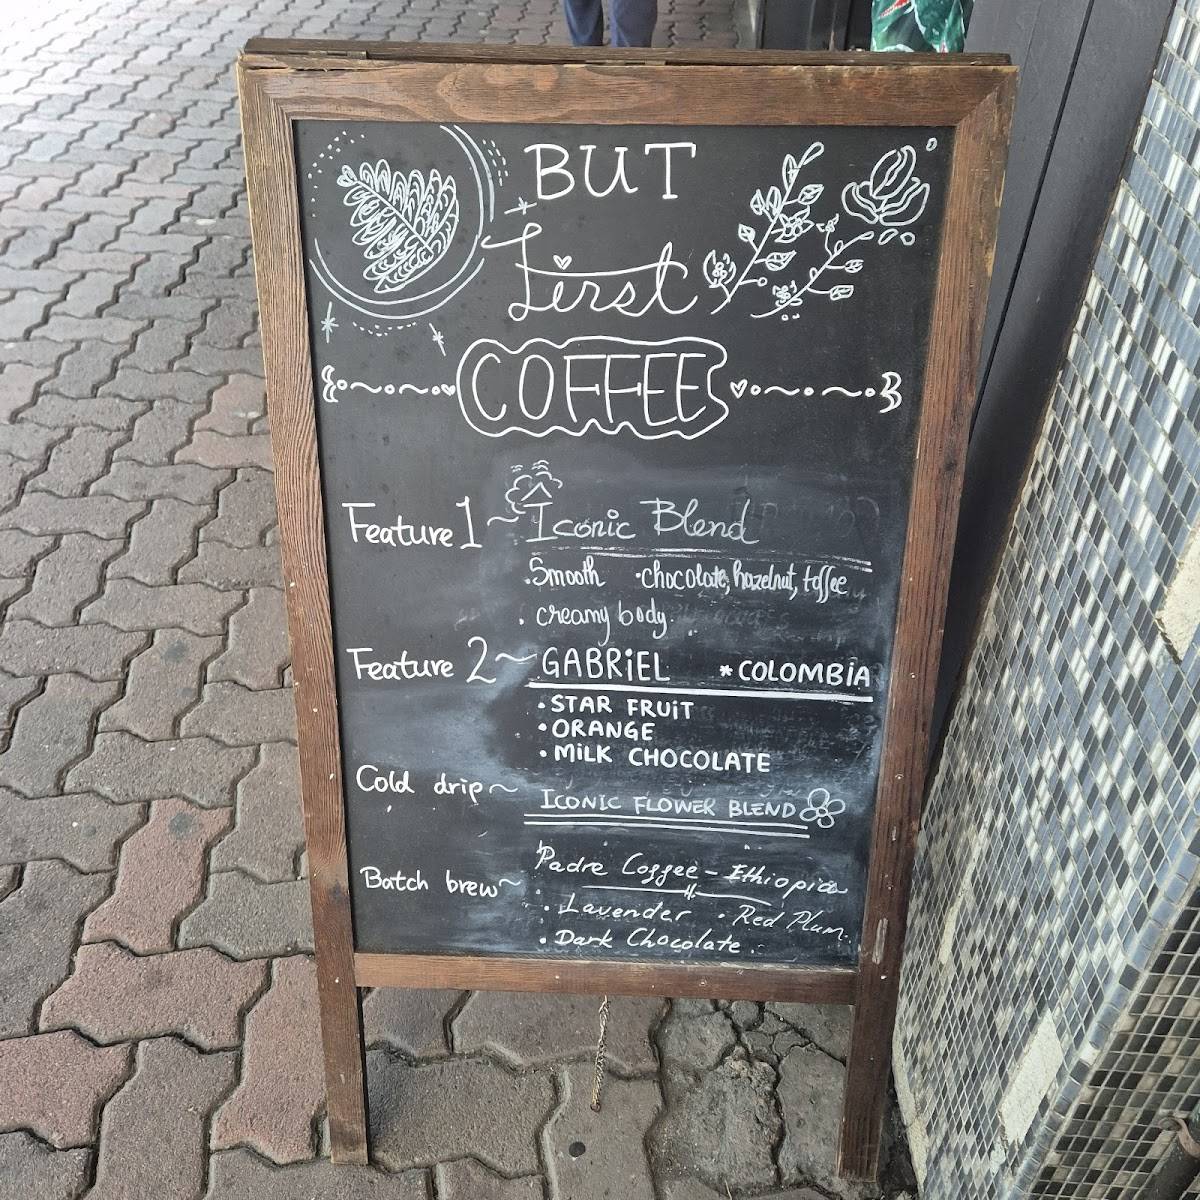 BUT
First
COFFEE
Feature 1 ~ Iconic Blend
• Smooth • chocolate, hazelnut, toffee
• creamy body.
Feature 2 ~ GABRiEL * COLOMBiA
• STAR FRUiT
• ORANGE
• MiLK CHOCOLATE
Cold drip ~ ICONIC FLOWER BLEND
Batch brew ~ Padre Coffee - Ethiopia
• Lavender • Red Plum.
• Dark Chocolate.